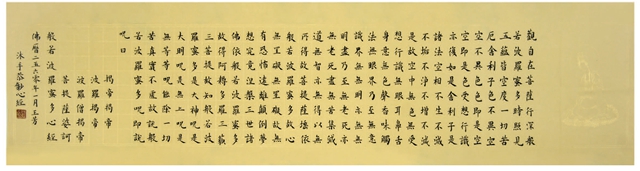 觀自在菩薩行深般
若波羅蜜多時照見
五蘊皆空度一切苦
厄舍利子色不異空
空不異色色即是空
空即是色受想行識
亦復如是舍利子是
諸法空相不生不滅
不垢不淨不增不減
是故空中無色無受
想行識無眼耳鼻舌
身意無色聲香味觸
法無眼界乃至無意
識界無無明亦無無
明盡乃至無老死亦
無老死盡無苦集滅
道無智亦無得以無
所得故菩提薩埵依
般若波羅蜜多故心
無罣礙無罣礙故無
有恐怖遠離顛倒夢
想究竟涅槃三世諸
佛依般若波羅蜜多
故得阿耨多羅三藐
三菩提故知般若波
羅蜜多是大神呪是
大明呪是無上呪是
無等等呪能除一切
苦真實不虛故說般
若波羅蜜多呪即說
呪曰
揭帝揭帝
波羅揭帝
波羅僧揭帝
菩提薩婆訶
般若波羅蜜多心經
佛曆二五六零年一月王芳
沐手恭敬心經